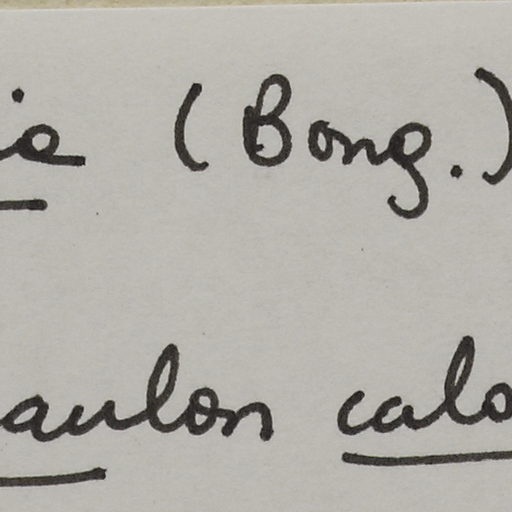 ie (Bong.)
aulon calo